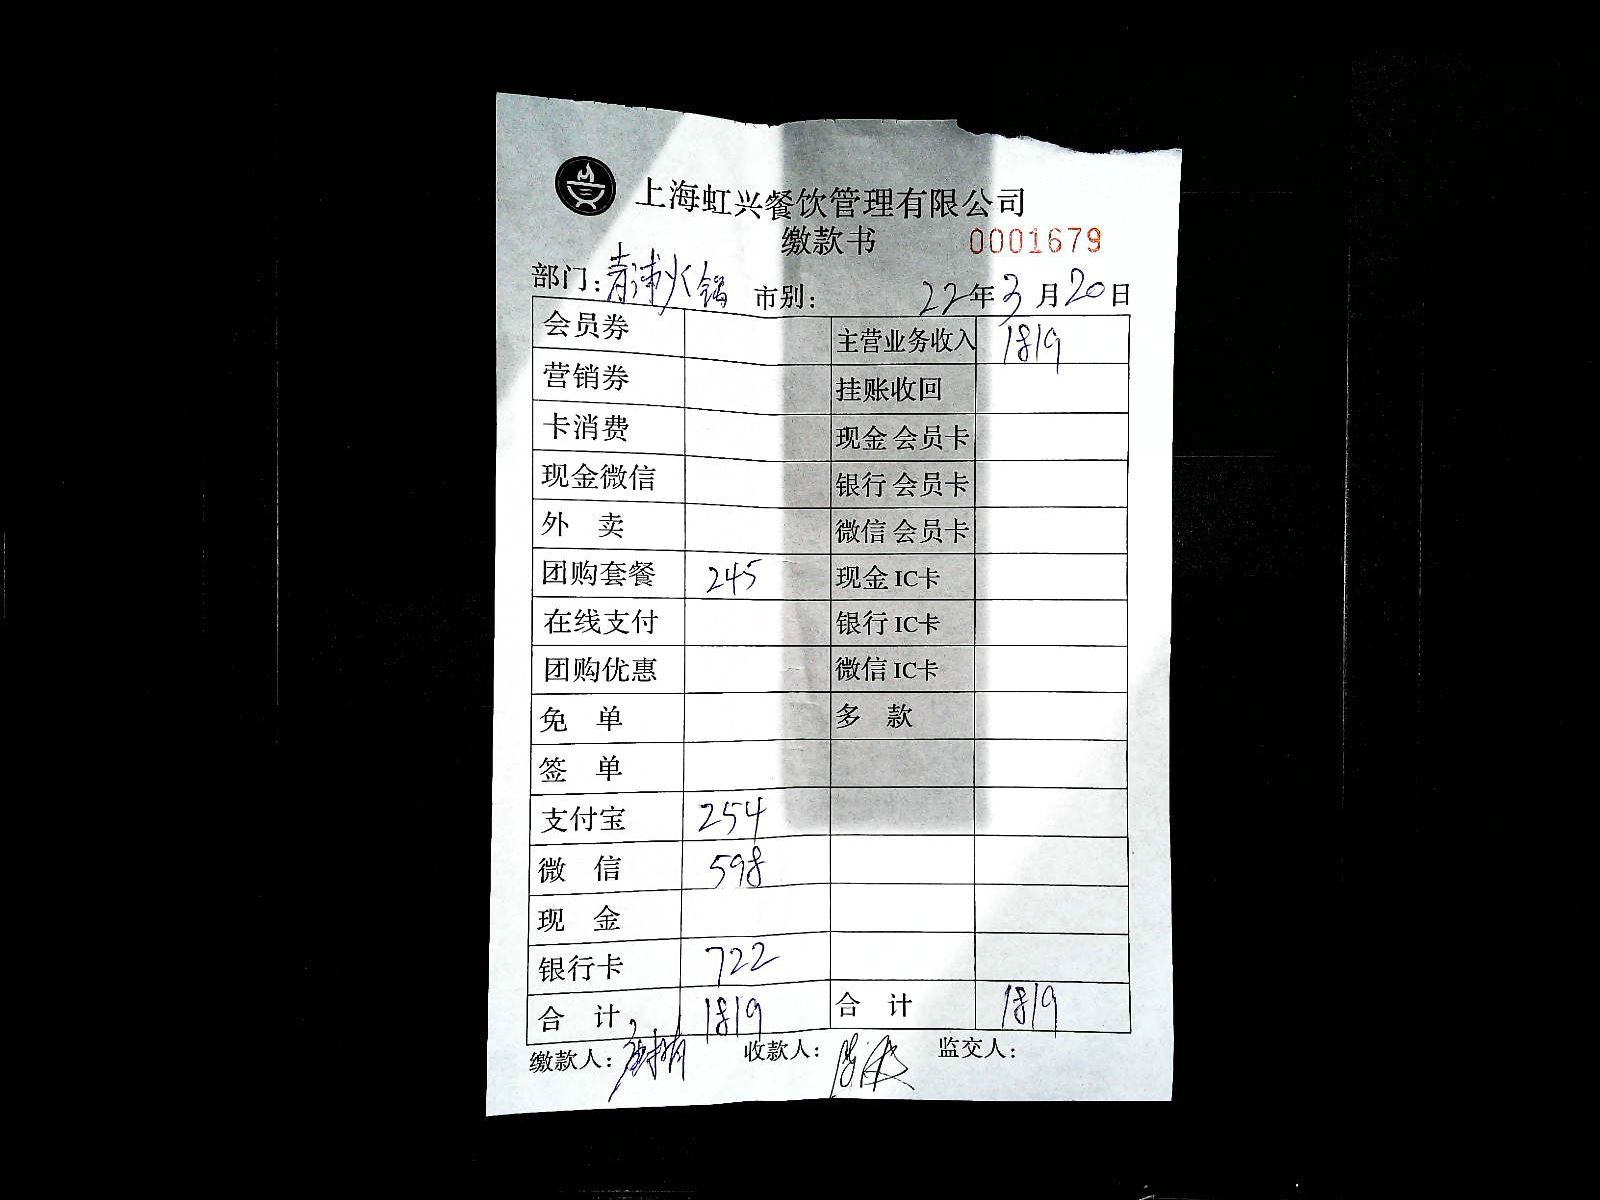 上海虹兴餐饮管理有限公司
缴款书 0001679
部门: 青浦火锅 市别: 22年3月20日
会员券 主营业务收入 1819
营销券 挂账收回
卡消费 现金会员卡
现金微信 银行会员卡
外 卖 微信会员卡
团购套餐 245 现金IC卡
在线支付 银行IC卡
团购优惠 微信IC卡
免 单 多 款
签 单
支付宝 254
微 信 598
现 金
银行卡 722
合 计 1819 合 计 1819
缴款人: 收款人: 监交人: